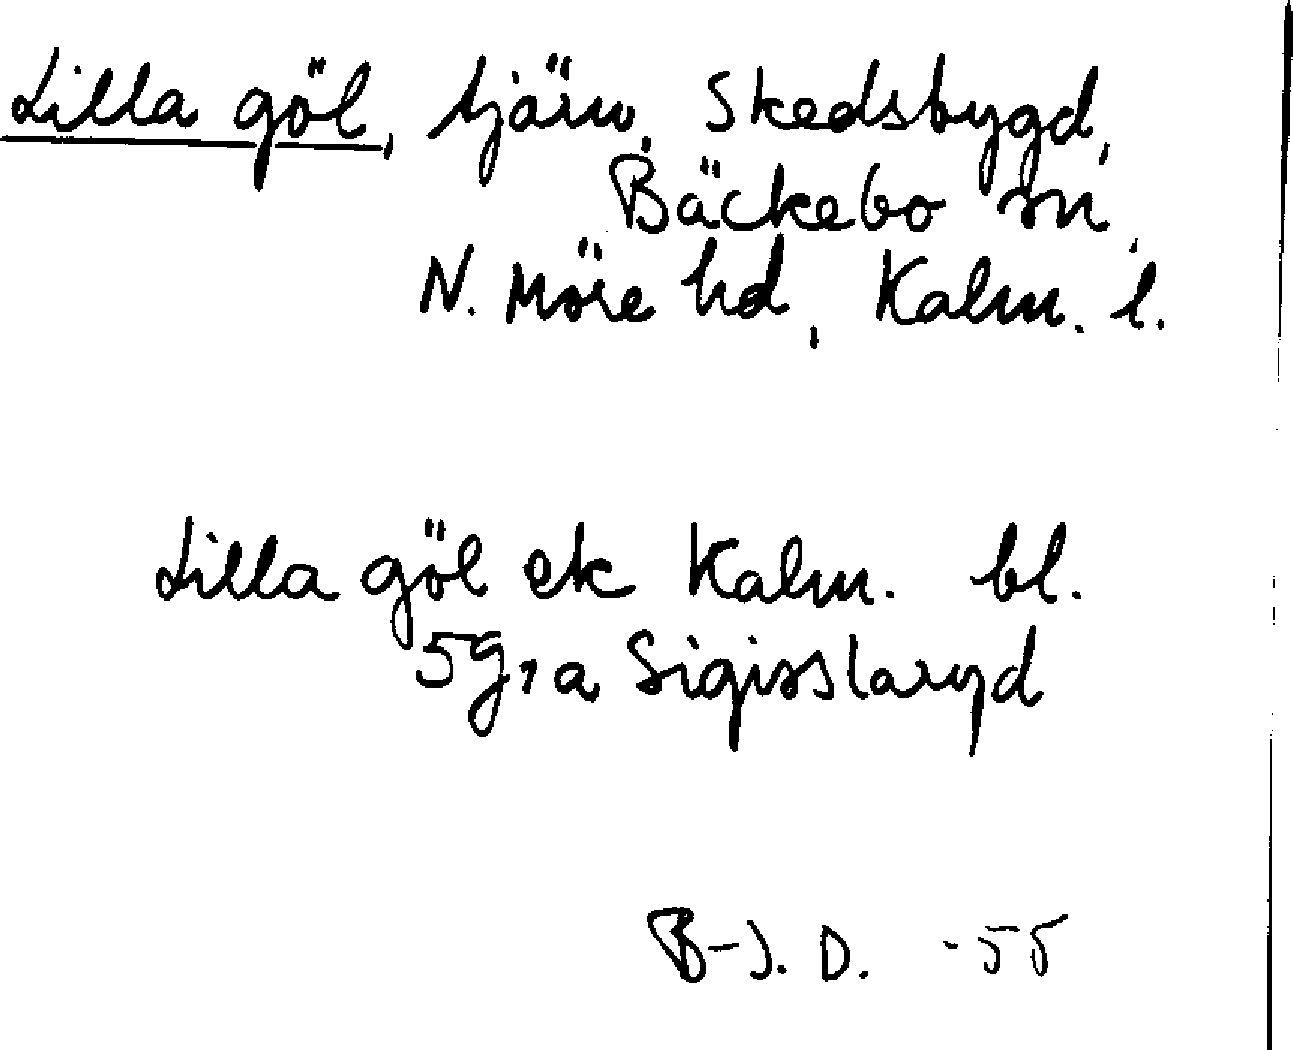 Lilla göl, tjärn, Skedsbygd,
Bäckebo sn,
N. Möre hd, Kalm. l.
Lilla göl ek Kalm. bl.
5g,a Sigisslaryd
B-J. D. -55